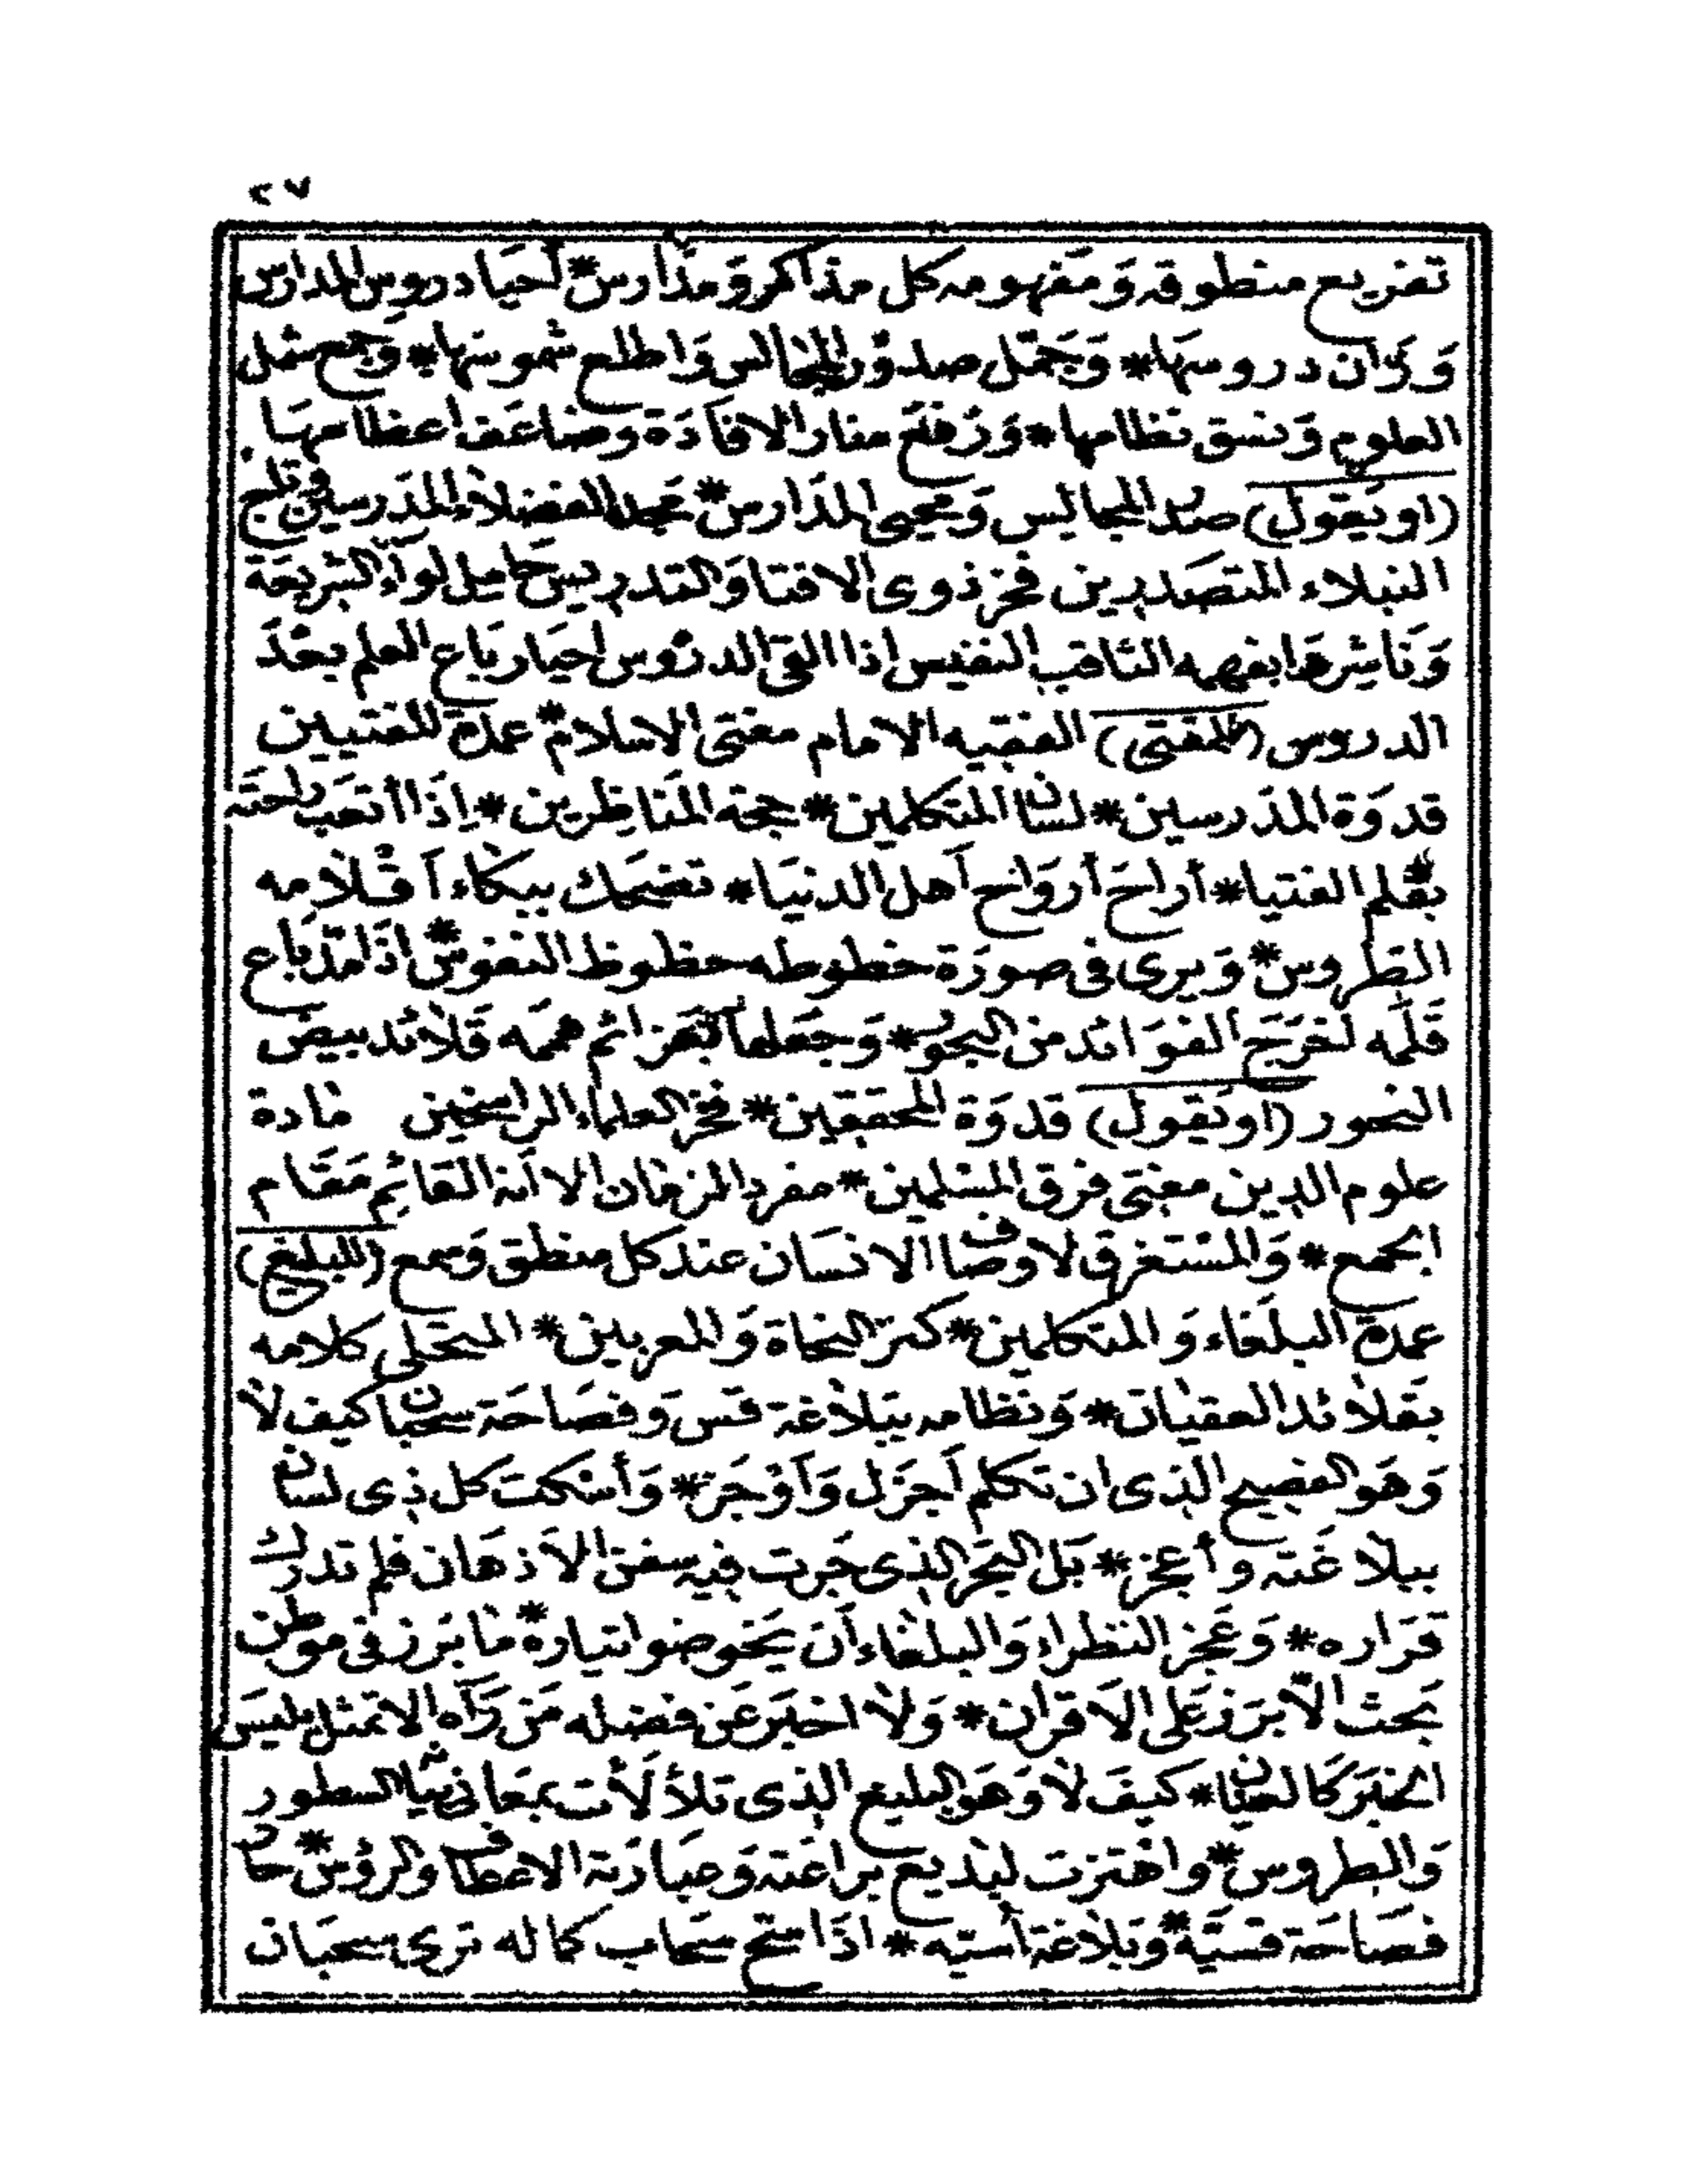 ٢٧
تفريع منطوقه وَمَفهومه كل مذاكر وَمدَارس * أحيا دروس المدارس
وَزان دروسهَا * وَجَمّل صدوُر المجَالس وَاطلع شموسها * وَجمع شمل
العلوم وَنسق نظامها * وَرفع منار الافَادَة وضاعَف اعظامهَا
(او يَقول) صدر المجَاليس وَمحيى المدَارس * عمدة الفضلاء المدَرسين تاج
النبلاء المتصَدرين فخر ذوى الافتا وَالتدريس حَامل لوآء الشريعَة
وَنَاشرهَا بفهمه الثاقب النفيس اذا القى الدروُس احيا ربَاع العلم بعْدَ
الدروس (للمفتى) الفقيه الامام مفتى الاسلام * عمدة المفتيين
قدوَة المدَرسين * لسان المتكلمين * حجة المنَاظِرين * إذَا أتعَب راحته
بقَلم الفتيا * أراحَ أروَاح أهل الدنيَا * تضحَك ببكاء أقلامه
الطروس * وَيرى فى صورَة خطوطه حظوظ النفوس * اذَا مدّ بَاع
قَلمَه أخرَج الفوَائد من البحوُر * وَجَعلها بعَزائم هممَه قَلائد بيض
النحور (او يَقول) قدوَة المحققين * فخر العلماء الراسخين مَادة
علوم الدين مفتى فرق المسْلمين * مفرد الزمَان الا أنه القائِم مَقَام
الجمع * وَالمسْتغرق لاوصَاف الانسَان عند كل منطق وَسمع (للبليغ)
عمدة البلغَاء وَالمتكلمين * كنز النحَاة وَالمعربين * المتحَلى كلامه
بقلائد العقيَان * وَنظامه ببَلاغة قس وَفصَاحَة سحبَان كيف لاَ
وَهَو الفصيح الذى ان تكلم أجزَل وَأوْجَز * وَأسْكت كل ذى لسَان
ببلاغَته وأعجز * بَل البحَر الذى جَرت فيه سفن الاَذهَان فلم تدرك
قرَاره * وَعَجز النظراء وَالبلغَاء أن يَخوضوا تياره * مَا بَرز فى موطن
بَحث الاّ برَز عَلى الاَقرَان * وَلاَ اخبَر عَن فضله مَن رَآه الا تمثل ليسَ
الخبَر كَالعيَان * كيفَ لاَ وَهَو البليغ الذى تلأ لأت بمَعَانى السطور
وَالطروس * واهتزت لبَديع برَاعته وَعبَارَته الاعطَاف والرؤس *
فصَاحَة قسيّة * وَبَلاغة * اذَا سَحّ سحَاب كماله ترى سحبَان